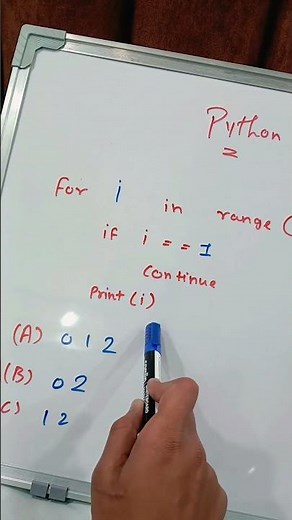 Python
for i in range (
if i == 1
continue
Print (i)
(A) 0 1 2
(B) 0 2
C) 1 2